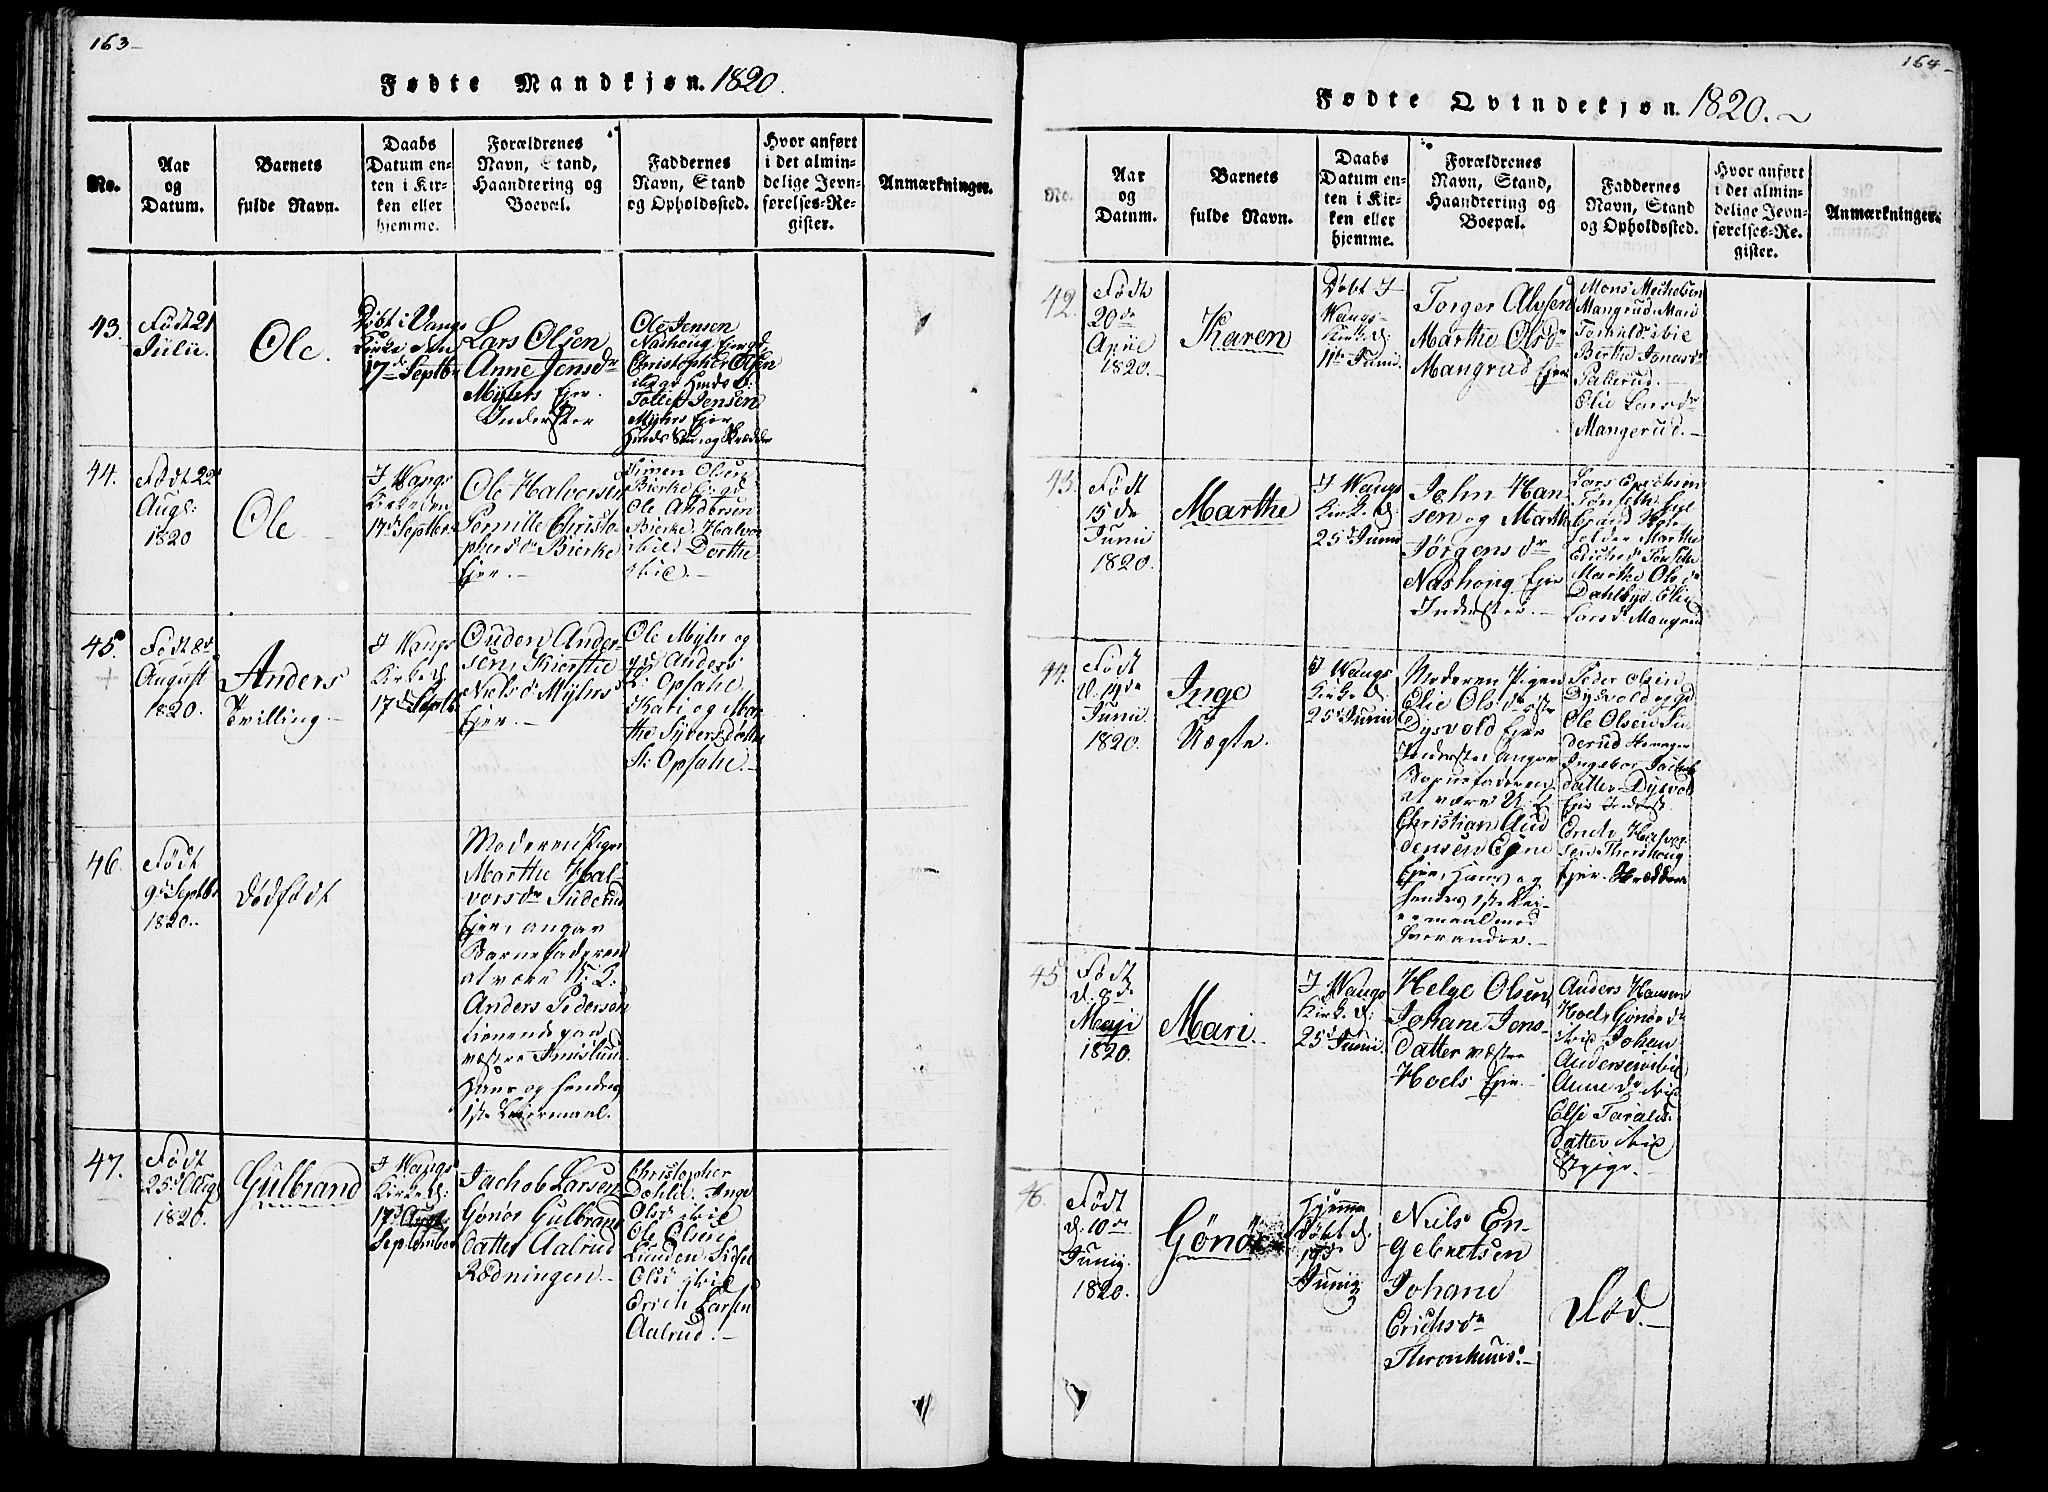 163-
Fødte Mandkjøn. 1820.
No.
Aar
og
Datum.
Barnets
fulde Navn.
Daabs
Datum en-
ten i Kir-
ken eller
hjemme.
Forældrenes
Navn, Stand,
Haandtering og
Boepæl.
Faddernes
Navn, Stand
og Opholdssted.
Hvor anført
i det almin-
delige Jevn-
førelses-Re-
gister.
Anmærkninger.
43.
Født 21
Julii.
Ole.
Døbt i Vangs
Kirke den
17de Septbr
Lars Olsen
Anne Jensdr
Myhrs Eier.
Inderster
Ole Jensen
Nashoug Eier
Christopher Olsen
Tollef Jensen
Myhrs Eier
44.
Født 22d
Augl:
1820
Ole
I Wangs
Kirke den
17d Septbr.
Ole Halvorsen
Pernille Christo-
phersdr Bierke
Eier.-
Simen Olsen
Bierke
Ole Andersen
Bierke, Halvor
ibid: Dorthe
ibid.-
45.
Født 8d
August
1820.
Anders
Tvilling.-
I Wangs
Kirke d
17d Septb.
Ouden Ander-
sen, Kiersti
Nielsd Myhrs
Eier.-
Ole Myhr og
Anders
Opsahl.
Kari og Mar-
the Syversdøttr
St: Opsahl.-
46.
Født
9d Septbr
1820.
Dødfødt
Moderen Pigen
Marthe Hal-
vorsdr Suderud
Eier, angav
Barnefaderen
at være U: K:
Anders Pedersen
tienende paa
vestre Amlund
hans og hendes
1ste Leiermaal.
47.
Født
25d Aug
1820.
Gulbrand
I Wangs
Kirke d:
17d
September
Jachob Larsen
Gønor Gulbrands
datter Aalrud
Rødningen.-
Christopher
Dahle. Inge
Olsd ibid
Ole Olsen
Lunden. Sidsel
Olsd ibid
Erich Larsen
Aalrud.-
164-
Fødte Qvindekjøn. 1820.
No.
Aar
og
Datum.
Barnets
fulde Navn.
Daabs
Datum en-
ten i Kir-
ken eller
hjemme.
Forældrenes
Navn, Stand,
Haandtering og
Boepæl.
Faddernes
Navn, Stand
og Opholdssted.
Hvor anført
i det almin-
delige Jevn-
førelses-Re-
gister.
Anmærkninger.
42.
Født
20de
April
1820.-
Karen
Døbt I
Wangs-
Kirke d:
11te Junii
Torger Alfsen
Marthe Olsdr
Mangrud Eier
Mons Michelsen
Mangrud. Mari
ibid
Berthe Jonasdr
Pallerud.-
Elie Larsdr
Mangerud.-
43.
Født
15de
Junii
1820.
Marthe
I Wangs
Kirke d.
25d Junii
John Han-
sen og Marthe
Jørgensdr
Nashoug Eier
Inderster.-
Lars Erichsen
Marthe
Marthe Olsdr
Dahlbye. Elie
Larsd Mangrud
44.
Født
d. 19de
Junii
1820.
Inge
Uægte.
I Wangs
Kirke d.
25d Junii
Moderen Pigen
Elie Olsdr østre
Dysvold Eier
Inderster angav
Barnefaderen
at være U. K.
Christian Aud
densen Egne
Eier, hans og
hendes 1ste Lei-
ermaal med
hverandre.-
Peder Olsen
Dysvold og
Ole Olsen Su-
derud
Ingebor Jachobs
datter Dysvold
Eier Inderst.
Endre Halvor-
sen Thorshoug
Eier.
45
Født
d. 8de
Maji
1820.
Mari.
I Wangs
Kirke d:
25d Junii.
Helge Olsen
Johane Jons-
datter vestre
Hoels Eier.-
Anders Hansen
Hoel, Gønor dr
ibid Johan
Andersen ibid
Anne dr ibid
Else Taralds
datter ibid
Pige.-
46.
Født
d. 10de
Junij.
1820.
Gønor
Hjemme
Døbt d.
19d
Junij
Niels En-
gebretsen
Johane
Erichsdr
Thronhuus.-
Død.-